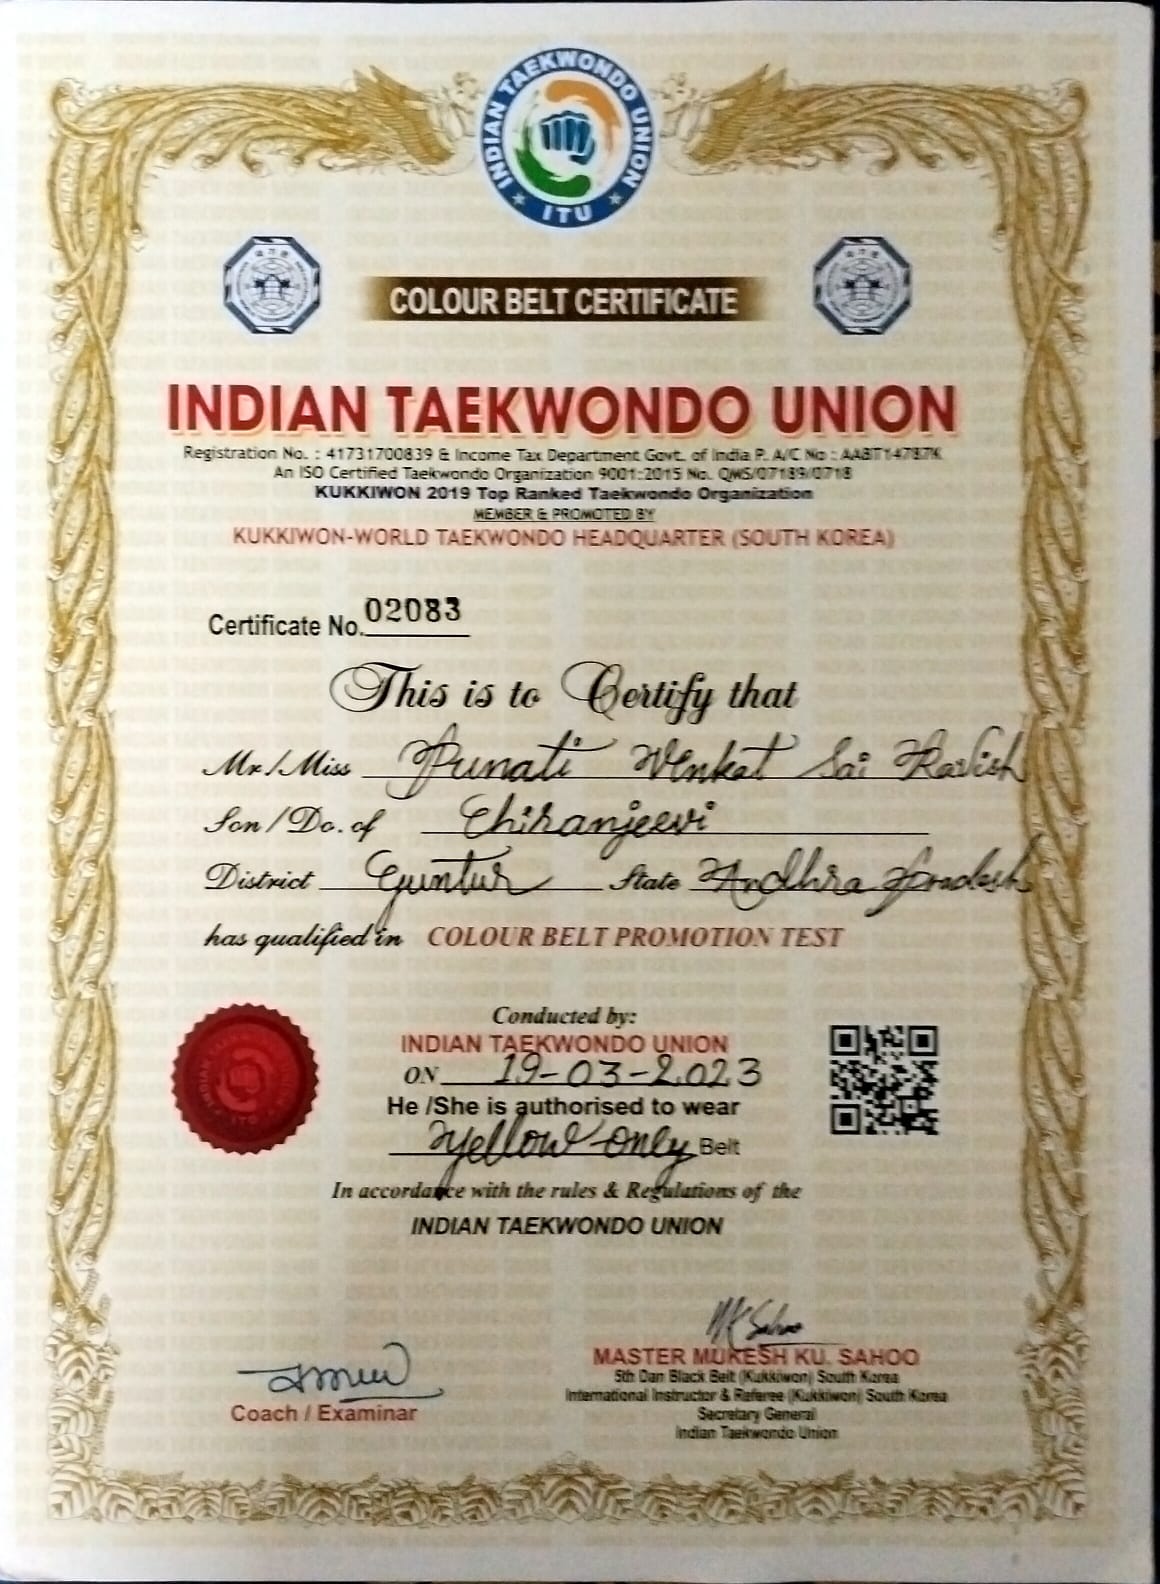 INDIAN TAEKWONDO UNION
ITU
COLOUR BELT CERTIFICATE
INDIAN TAEKWONDO UNION
Registration No. : 41731700839 & Income Tax Department Govt. of India P. A/C No : AABT14787K
An ISO Certified Taekwondo Organization 9001:2015 No. QMS/07189/0718
KUKKIWON 2019 Top Ranked Taekwondo Organization
MEMBER & PROMOTED BY
KUKKIWON-WORLD TAEKWONDO HEADQUARTER (SOUTH KOREA)
Certificate No. 02083
This is to Certify that
Mr/Miss Punati Venkat Sai Kavish
Son/Do. of Chiranjeevi
District Guntur State Andhra Pradesh
has qualified in COLOUR BELT PROMOTION TEST
Conducted by:
INDIAN TAEKWONDO UNION
ON 19-03-2023
He /She is authorised to wear
Yellow only Belt
In accordance with the rules & Regulations of the
INDIAN TAEKWONDO UNION
MK Sahoo
MASTER MUKESH KU. SAHOO
5th Dan Black Belt (Kukkiwon) South Korea
International Instructor & Referee (Kukkiwon) South Korea
Secretary General
Indian Taekwondo Union
Coach / Examinar